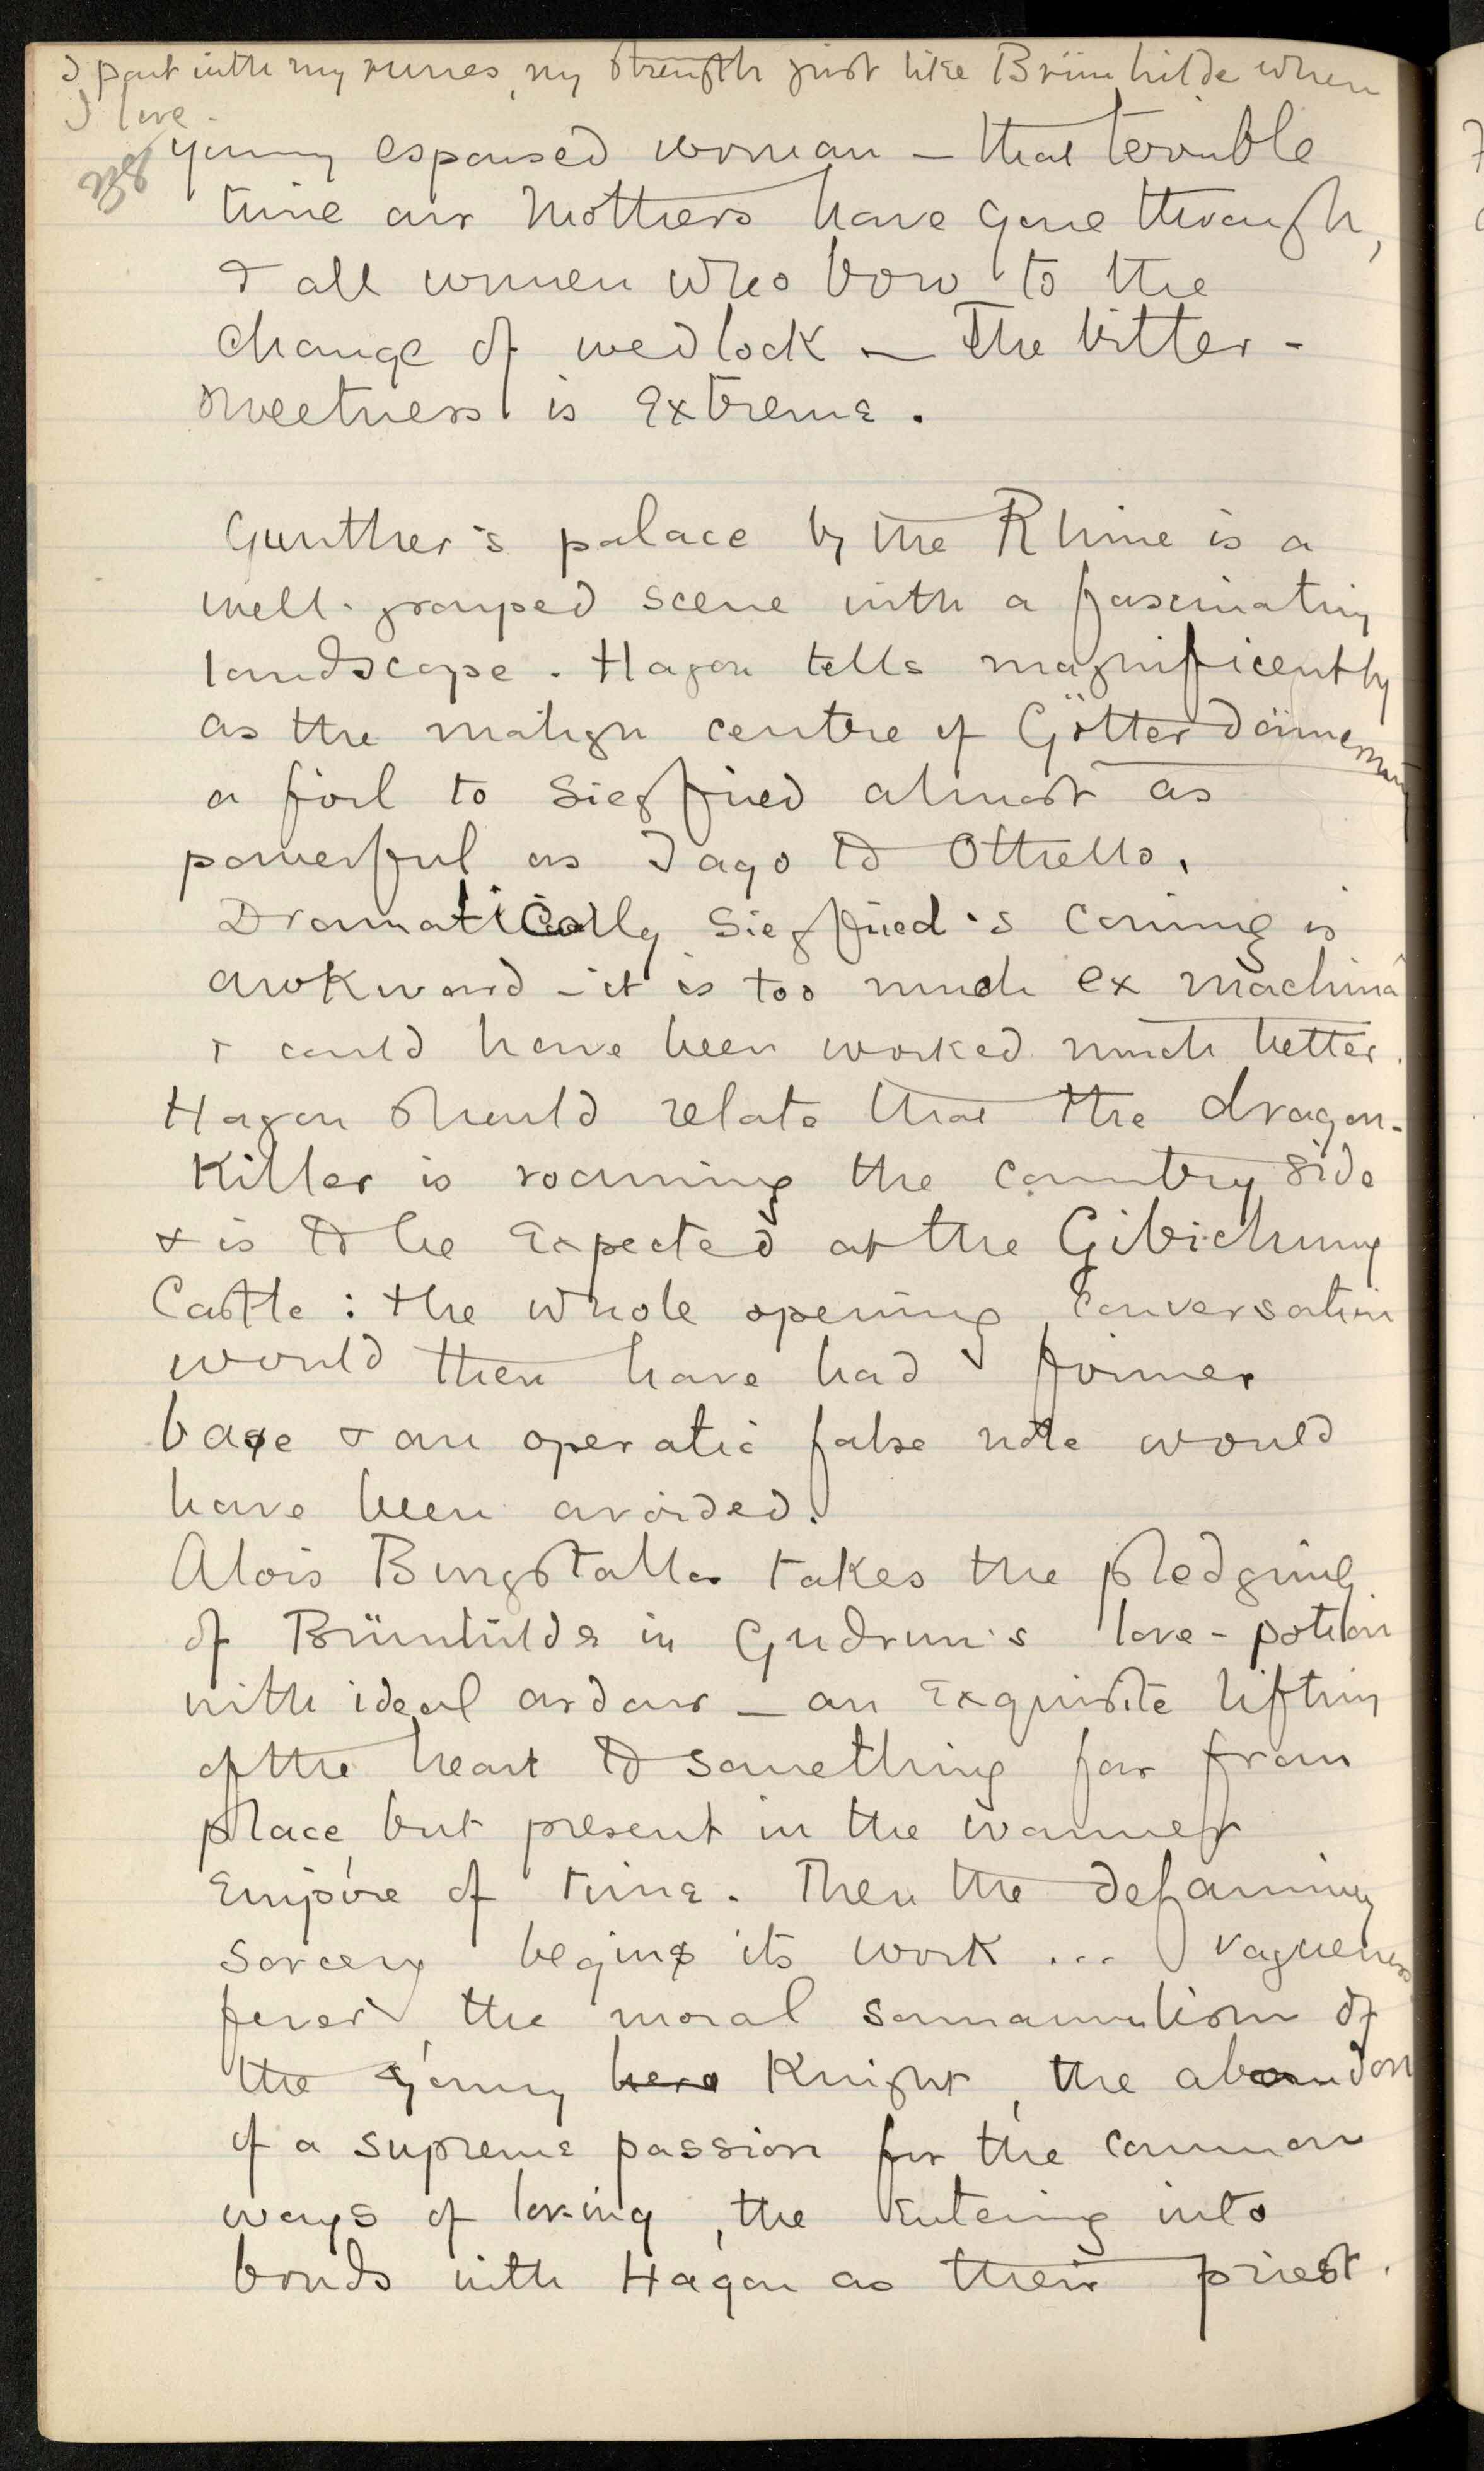 I part with my runes, my strength just like Brünhilde when
I love.
38
young espoused woman – that terrible
time our Mothers have gone through,
& all women who bow to the
change of wedlock – The bitter-
sweetness is extreme.
Gunther's palace by the Rhine is a
well-grouped scene with a fascinating
landscape. Hagen tells magnificently
as the malign centre of Götterdämmerung
a foil to Siegfried almost as
powerful as Iago to Othello.
Dramatically Siegfried's coming is
awkward – it is too much ex machinâ
& could have been worked much better.
Hagen should relate that the dragon-
Killer is roaming the country side
& is to be expected at the Gibichung
Castle: the whole opening conversation
would then have had firmer
base & an operatic false note would
have been avoided.
Alois Burgstaller takes the pledging
of Brünhilde in Gudrun's love-potion
with ideal ardour – an exquisite lifting
of the heart to something far from
place, but present in the warmer
Empire of time. Then the defaming
sorcery begins its work ... vagueness
fever, the moral somnambulism of
the young hero Knight, the abandon
of a supreme passion for the common
ways of loving, the entering into
bonds with Hagen as their priest.